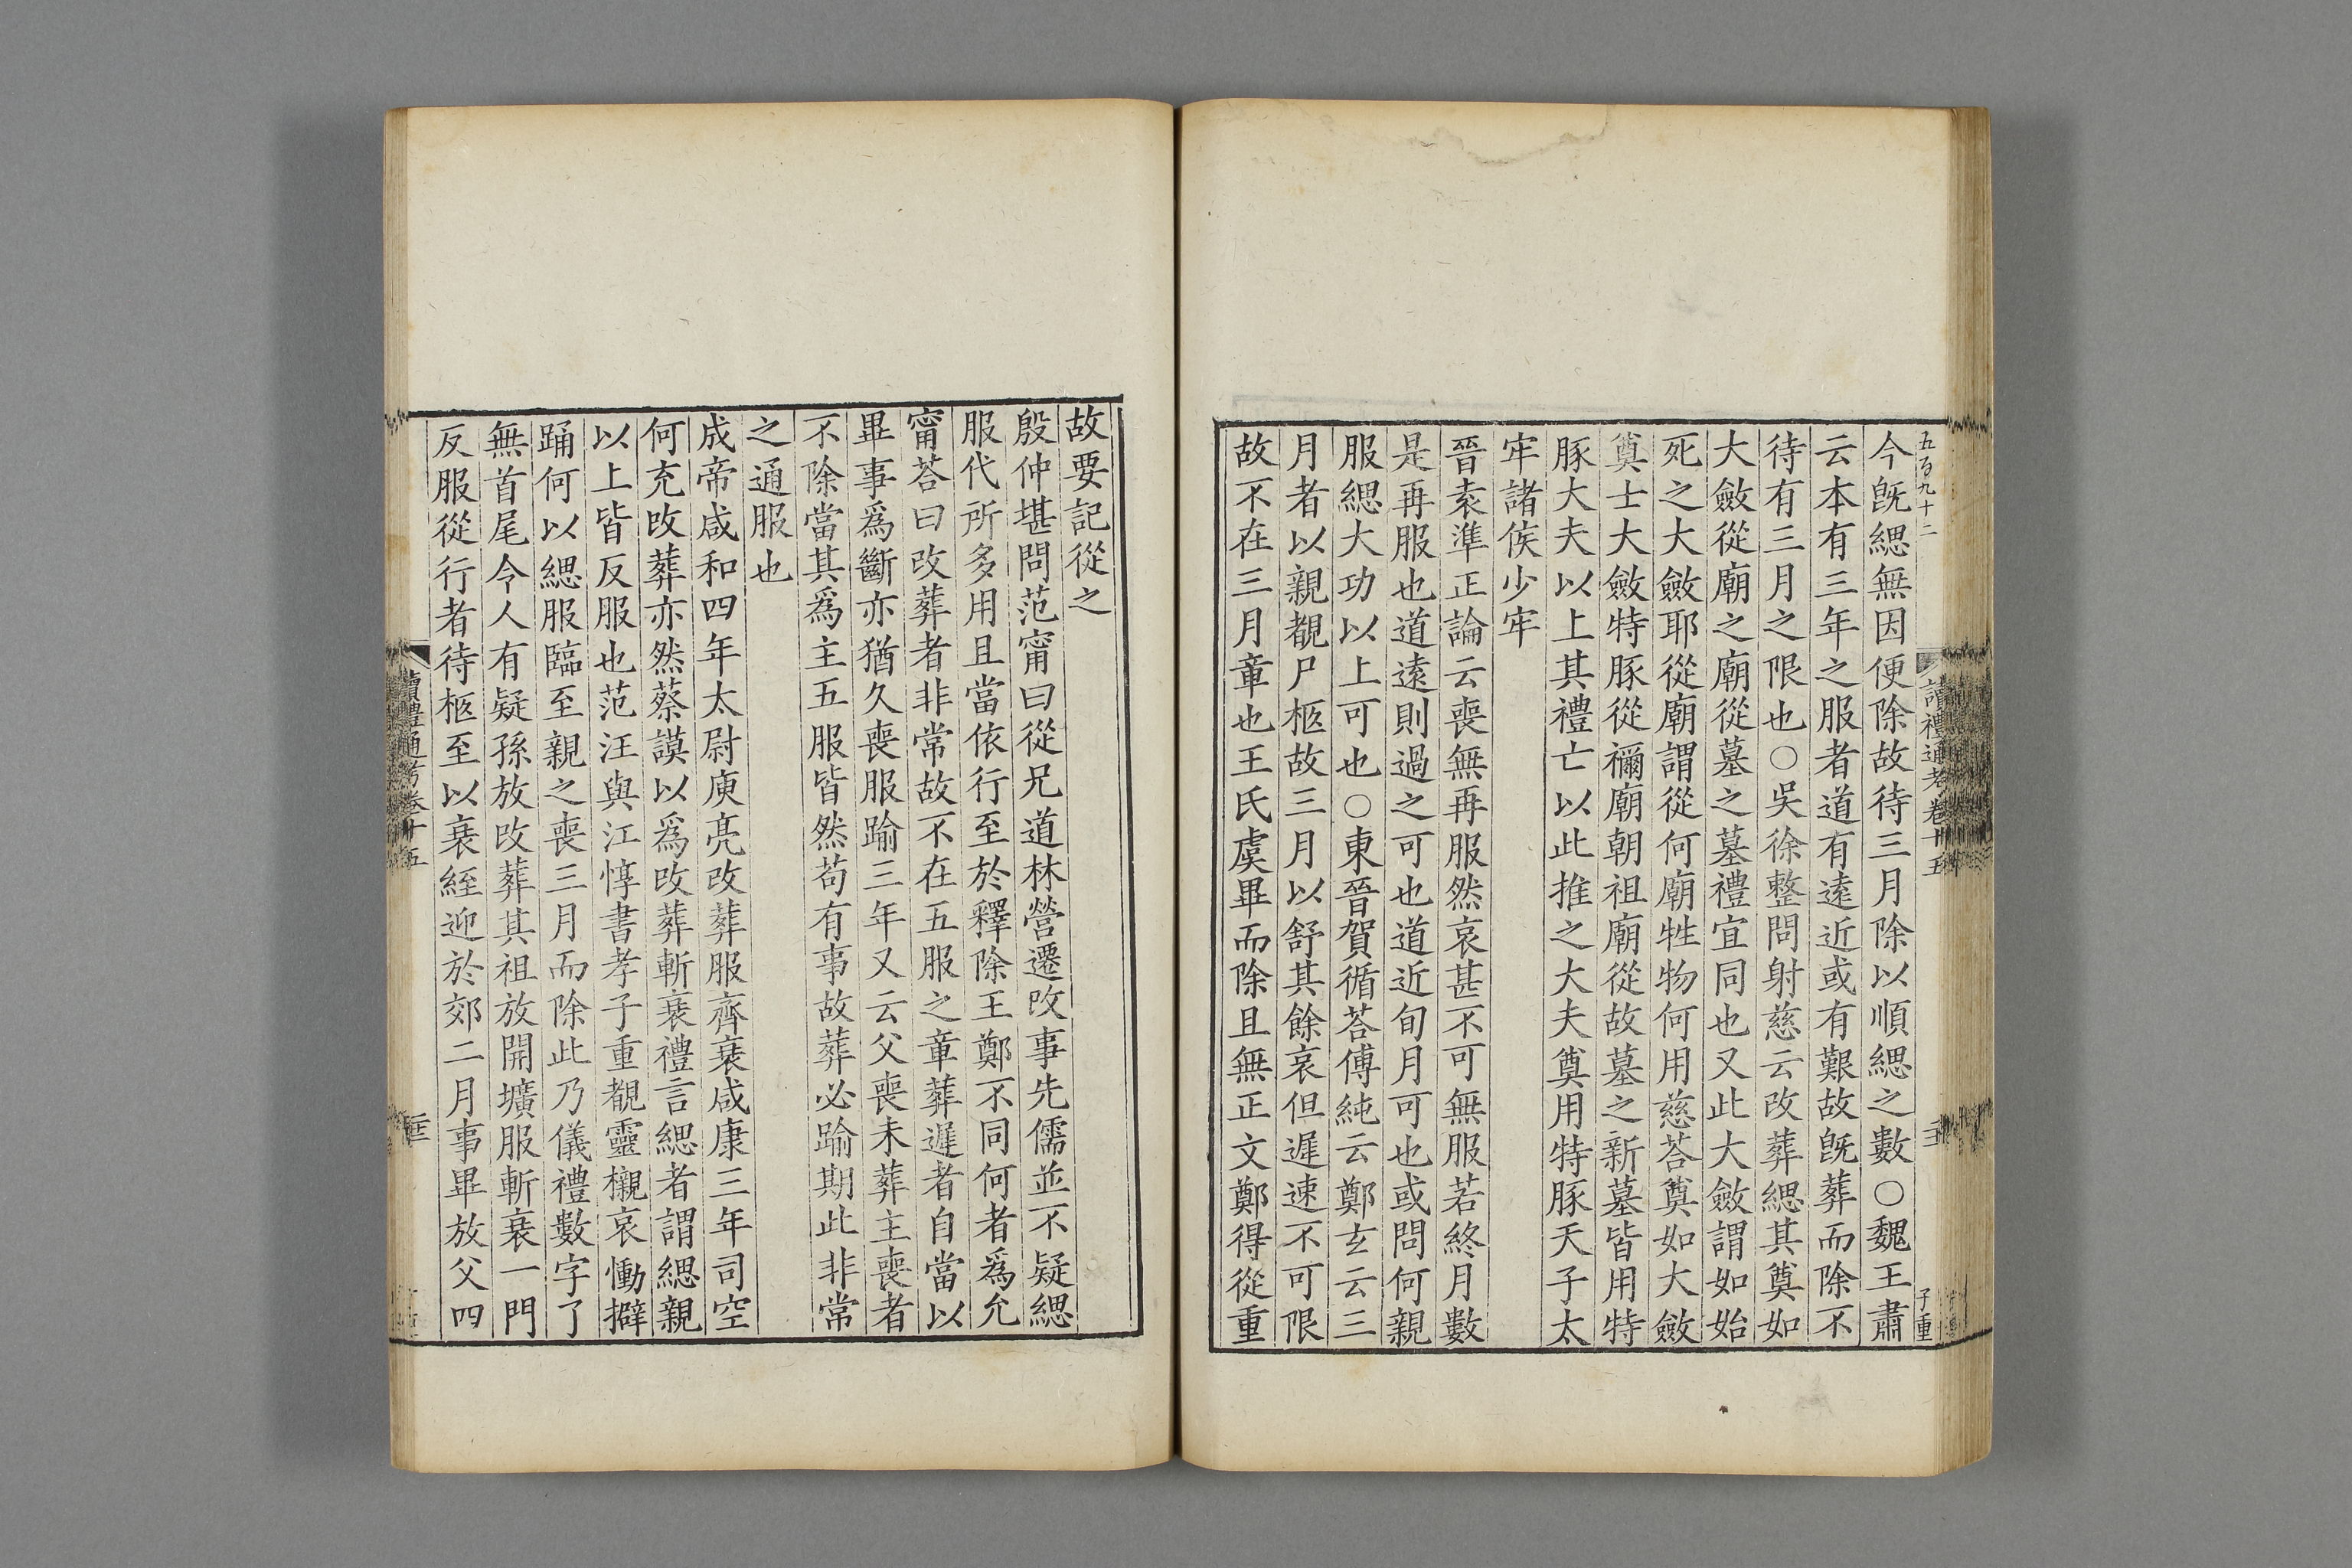 五百九十二
讀禮通考卷十五
子重
今旣緦無因便除故待三月除以順緦之數○魏王肅
云本有三年之服者道有遠近或有艱故旣葬而除不
待有三月之限也○吳徐整問射慈云改葬緦其奠如
大斂從廟之廟從墓之墓禮宜同也又此大斂謂如始
死之大斂耶從廟謂從何廟牲物何用慈荅奠如大斂
奠士大斂特豚從禰廟朝祖廟從故墓之新墓皆用特
豚大夫以上其禮亡以此推之大夫奠用特豚天子太
牢諸侯少牢
晉袁準正論云喪無再服然哀甚不可無服若終月數
是再服也道遠則過之可也道近旬月可也或問何親
服緦大功以上可也○東晉賀循荅傅純云鄭玄云三
月者以親覩尸柩故三月以舒其餘哀但遲速不可限
故不在三月章也王氏虞畢而除且無正文鄭得從重
故要記從之
殷仲堪問范甯曰從兄道林營遷改事先儒並不疑緦
服代所多用且當依行至於釋除王鄭不同何者爲允
甯荅曰改葬者非常故不在五服之章葬遲者自當以
畢事爲斷亦猶久喪服踰三年又云父喪未葬主喪者
不除當其爲主五服皆然苟有事故葬必踰期此非常
之通服也
成帝咸和四年太尉庾亮改葬服齊衰咸康三年司空
何充改葬亦然蔡謨以爲改葬斬衰禮言緦者謂緦親
以上皆反服也范汪與江惇書孝子重覩靈櫬哀慟擗
踊何以緦服臨至親之喪三月而除此乃儀禮數字了
無首尾令人有疑孫放改葬其祖放開壙服斬衰一門
反服從行者待柩至以衰絰迎於郊二月事畢放父四
讀禮通考卷十五